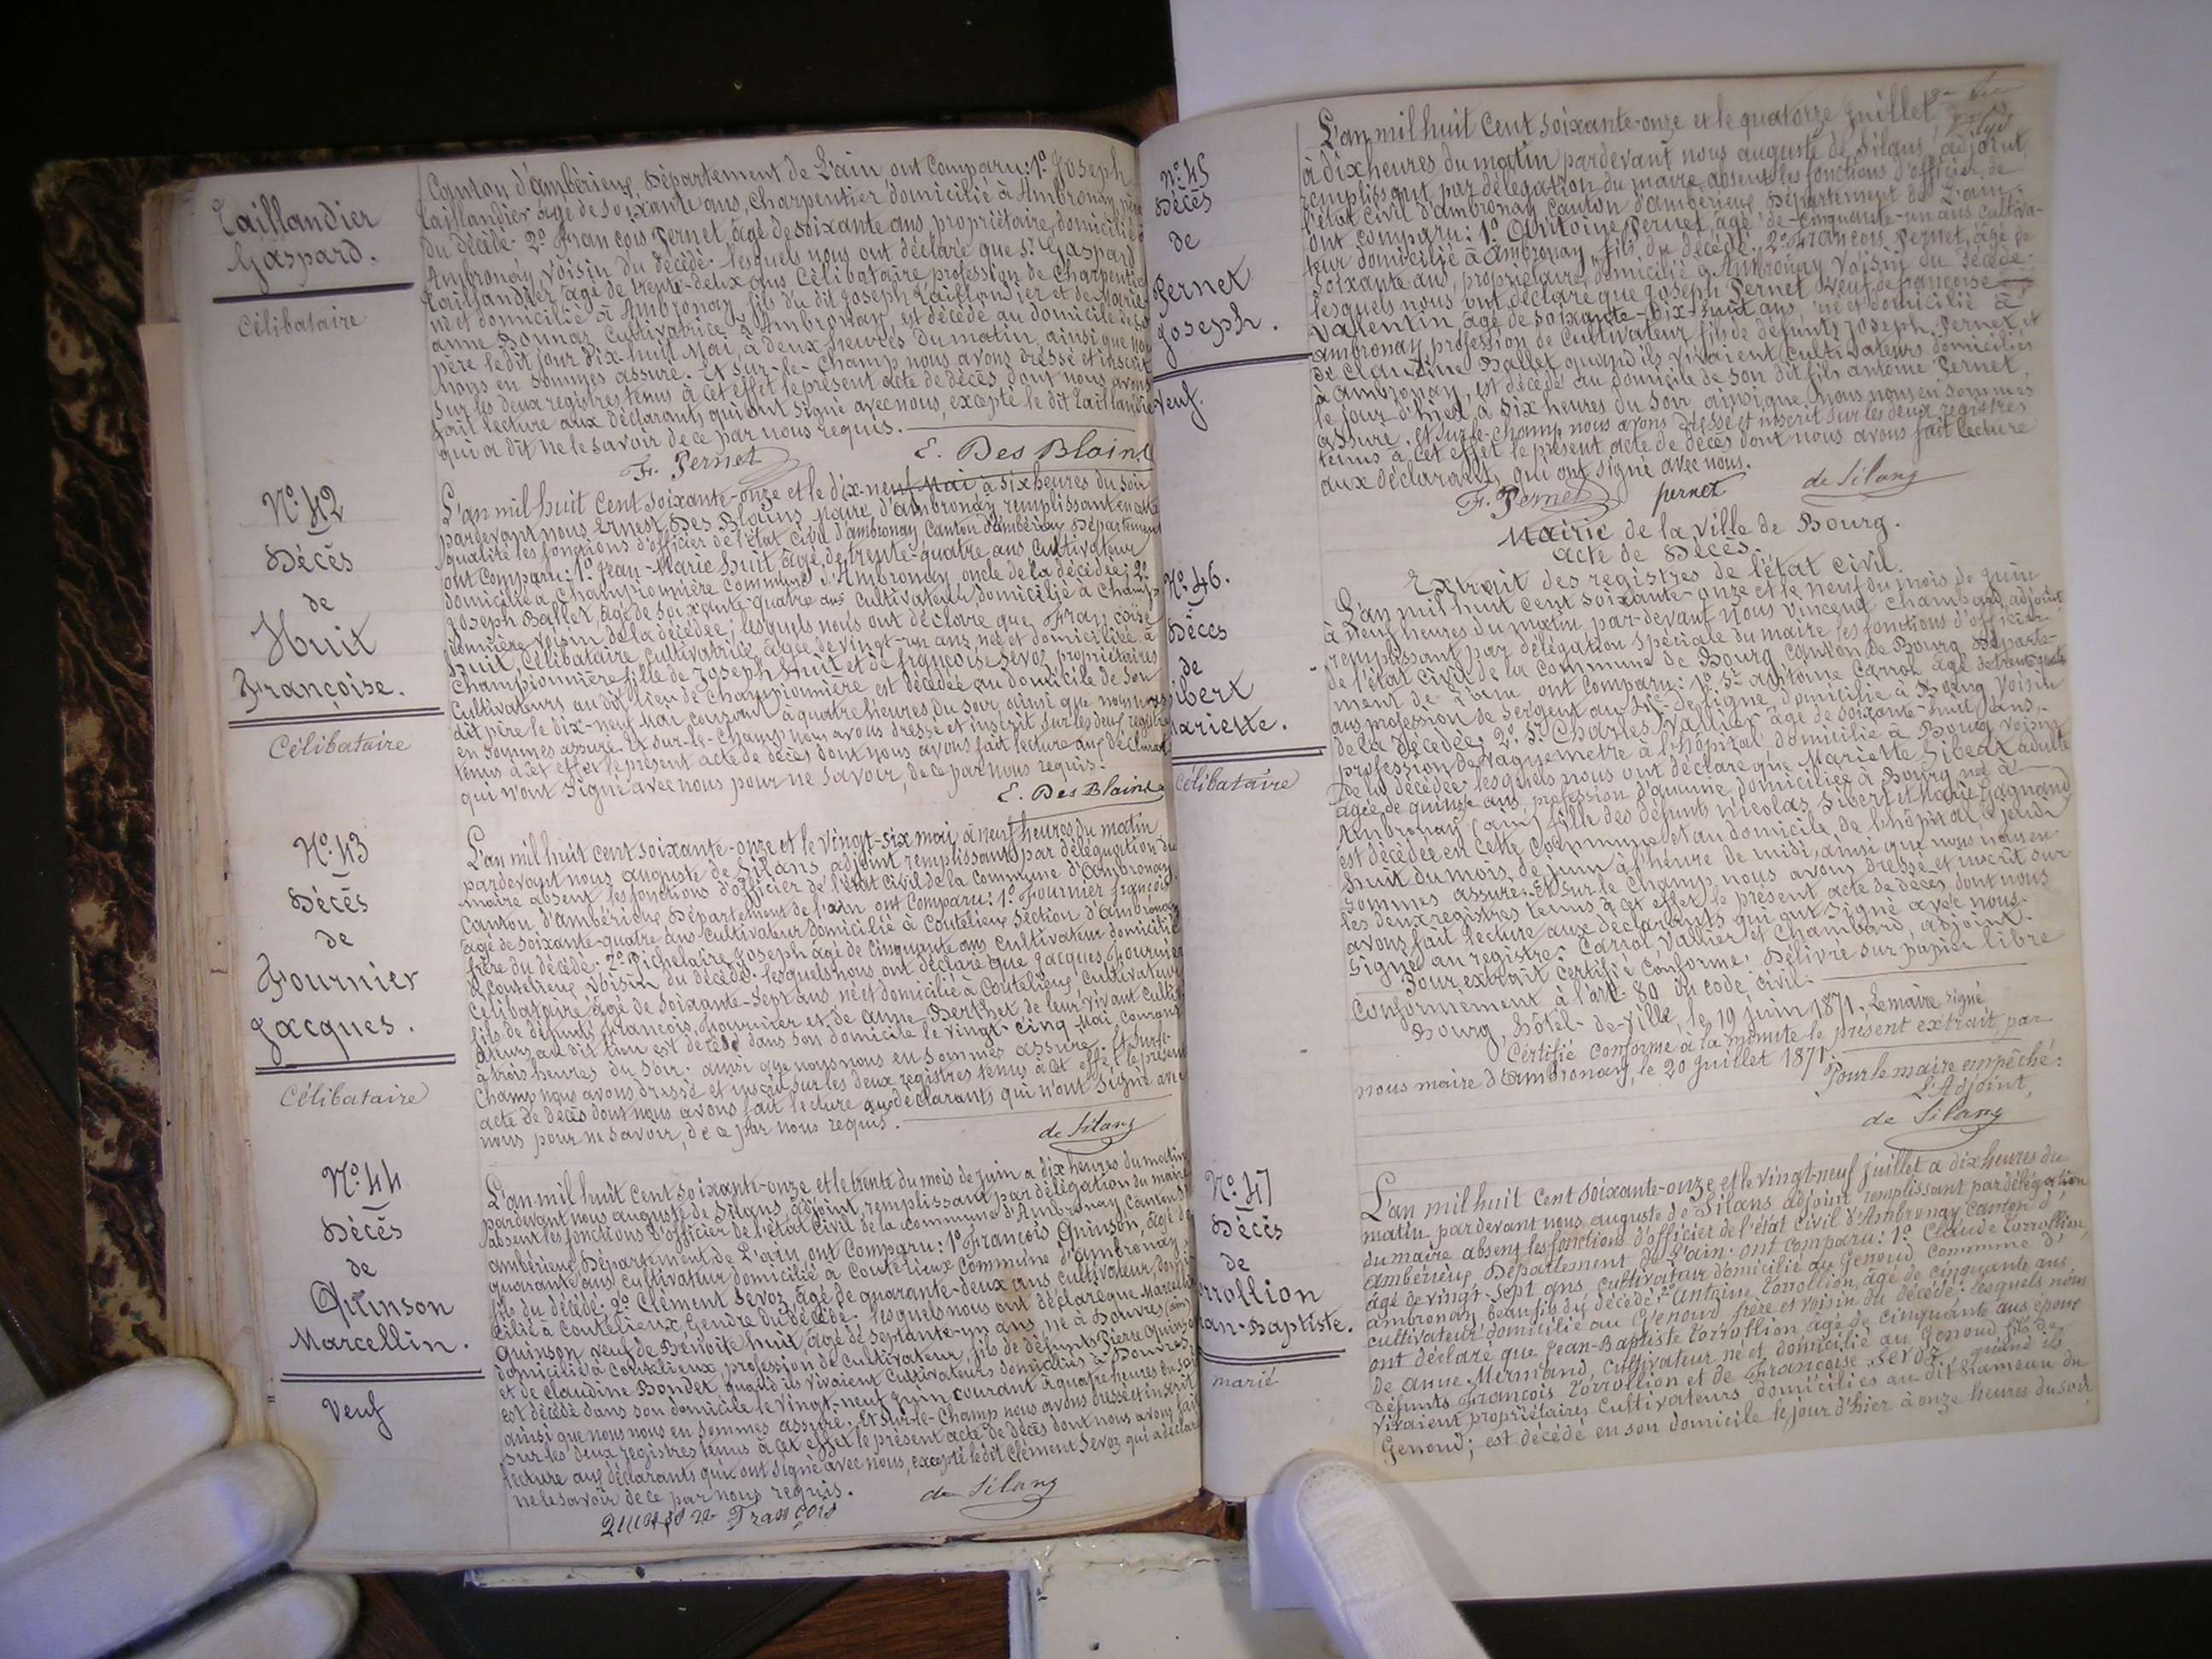 Taillandier
Gaspard.
Célibataire
Canton d'ambérieux Département de L'ain ont Comparu: 1º Joseph
Taillandier âgé de soixante ans, charpentier domicilié à Ambronay, père
du décédé. 2º François Pernet, âgé de soixante ans, propriétaire, domicilié à
Ambronay, voisin du décédé. lesquels nous ont déclaré que Sr. Gaspard
Taillandier âgé de trente-deux ans Célibataire, profession de Charpentier
né et domicilié à Ambronay, fils du dit Joseph Taillandier et de Marie
anne Bonnaz Cultivatrice à Ambronay, est décédé au domicile de son
père le dit jour dix-huit Mai, à deux heures du matin, ainsi que nous
nous en sommes assuré. Et sur-le-Champ nous avons dressé et inscrit
sur les deux registres tenus à cet effet le présent acte de décès dont nous avons
fait lecture aux déclarants qui ont signé avec nous, excepté le dit Taillandier
qui a dit ne le savoir de ce par nous requis.
F. Pernet E. Des Blains
Nº 42
Décès
de
Huit
Françoise.
Célibataire
L'an mil huit Cent soixante-onze et le dix-neuf Mai à six heures du soir
pardevant nous Ernest Des Blains Maire d'ambronay remplissant en cette
qualité les fonctions d'officier de l'état Civil d'ambronay Canton d'ambérieux Département
ont Comparu: 1º Jean-Marie huit, âgé de trente-quatre ans Cultivateur
domicilié à Championnière Commune d'Ambronay, oncle de la décédée; 2º
Joseph Ballet, âgé de soixante-quatre ans Cultivateur domicilié à Champ-
ionnière voisin de la décédée; lesquels nous ont déclaré que Françoise
huit, Célibataire, Cultivatrice, âgée de vingt-un ans, née et domiciliée à
Championnière fille de Joseph huit et de françoise Sevoz propriétaires
Cultivateurs au dit lieu de Championnière est décédée au domicile de son
dit père le dix-neuf Mai courant à quatre heures du soir ainsi que nous nous
en sommes assuré. Et sur-le-champ nous avons dressé et inscrit sur les deux registres
tenus à cet effet le présent acte de décès dont nous avons fait lecture aux déclarants
qui n'ont signé avec nous pour ne savoir, de ce par nous requis.
E. Des Blains
Nº 43
Décès
de
Fournier
Jacques.
Célibataire
L'an mil huit cent soixante-onze et le vingt-six mai à neuf heures du matin
pardevant nous auguste de Silans, adjoint remplissant par déléguation du
maire absent les fonctions d'officier de l'état Civil de la Commune d'ambronay
Canton d'ambérieux Département de l'ain ont Comparu: 1º Fournier françois
âgé de soixante-quatre ans Cultivateur domicilié à Coutelieux section d'ambronay
frère du décédé; 2º Pichelaire Joseph âgé de cinquante ans Cultivateur domicilié
à Coutelieux voisin du décédé. lesquels nous ont déclaré que Jacques Fournier
Célibataire âgé de soixante-sept ans, né et domicilié à Coutelieux, Cultivateur
fils de défunts françois fournier et de anne Berthet de leur vivant Cultiv-
ateurs au dit lieu est décédé dans son domicile le vingt-cinq Mai, courant
à trois heures du soir. ainsi que nous nous en sommes assuré. Et sur le-
Champ nous avons dressé et inscrit sur les deux registres tenus à cet effet le présent
acte de décès dont nous avons fait lecture aux déclarants qui n'ont signé avec
nous pour ne savoir, de ce par nous requis.
de Silans
Nº 44
Décès
de
Quinson
Marcellin.
Veuf
L'an mil huit cent soixante-onze et le trente du mois de juin a dix heures du matin
pardevant nous auguste de Silans, adjoint, remplissant par délégation du maire
absent les fonctions d'officier de l'état Civil de la Commune d'Ambronay Canton d'
ambérieux Département de L'ain ont Comparu: 1º François Quinson, âgé de
quarante ans cultivateur domicilié à Coutelieux Commune d'ambronay,
fils du décédé; 2º Clément Sevoz, âgé de quarante-deux ans cultivateur, domi-
cilié à Coutelieux, Gendre du décédé. lesquels nous ont déclaré que Marcellin
Quinson veuf de Benoite huit, âgé de septante-un ans, né à Douvres (ain)
domicilié à Coutelieux, profession de cultivateur, fils de défunts Pierre Quinson
et de Claudine Bondet, quand ils vivaient Cultivateurs domiciliés à Douvres
est décédé dans son domicile le vingt-neuf juin courant à quatre heures du soir
ainsi que nous nous en sommes assuré. Et sur-le-Champ nous avons dressé et inscrit
sur les deux registres tenus à cet effet le présent acte de décès dont nous avons fait
lecture aux déclarants qui ont signé avec nous, excepté le dit Clément Sevoz qui a déclaré
ne le savoir de ce par nous requis.
François de Silans
Nº 45
Décès
de
Pernet
Joseph.
Veuf.
L'an mil huit Cent soixante-onze et le quatorze Juillet
à dix heures du matin pardevant nous auguste de Silans, adjoint,
remplissant par délégation du maire absent les fonctions d'officier de
l'état Civil d'ambronay Canton d'ambérieux Département de L'ain
ont comparu: 1º Antoine Pernet, âgé de cinquante-un ans Cultiva-
teur domicilié à Ambronay fils du décédé. 2º François Pernet, âgé de
soixante ans, propriétaire, domicilié à Ambronay voisin du décédé.
lesquels nous ont déclaré que Joseph Pernet Veuf de françoise
Valentin, âgé de soixante-dix-huit ans, né et domicilié à
ambronay profession de Cultivateur fils de défunts Joseph Pernet et
de Claudine Ballet quand ils vivaient Cultivateurs domiciliés
à ambronay, est décédé au domicile de son dit fils antoine Pernet,
le jour d'hier à six heures du soir ainsi que nous nous en sommes
assuré. Et sur le-champ nous avons dressé et inscrit sur les deux registres
tenus à cet effet le présent acte de décès dont nous avons fait lecture
aux déclarants, qui ont signé avec nous.
F. Pernet pernet de Silans
Nº 46.
Décès
de
ibert
ariette.
Célibataire
Mairie de la Ville de Bourg.
acte de Décès.
Extrait des registres de l'état civil.
L'an mil huit cent soixante-onze et le neuf du mois de juin
à neuf heures du matin par-devant nous Vincent Chambard, adjoint
remplissant par délégation spéciale du maire les fonctions d'officier
de l'état civil de la Commune de Bourg canton de Bourg Départe-
ment de L'ain ont comparu: 1º Sr antoine Carrot âgé de trente-quatre
ans profession de sergent au de-ligne, domicilié à Bourg voisin
de la Décédée; 2º Sr Charles Vallier âgé de soixante-huit ans,
profession de Vaguemettre à l'hôpital domicilié à Bourg voisin
de la décédée lesquels nous ont déclaré que Mariette Sibert adulte
âgée de quinze ans, profession d'aucune domiciliée à Bourg née à
Ambronay (ain) fille des défunts Nicolas Sibert et Marie Gagnand
est décédée en cette Commune et au domicile de l'hôpital le jeudi
huit du mois de juin à l'heure de midi, ainsi que nous nous en
sommes assuré. Et sur le champ nous avons dressé et inscrit sur
les deux registres tenus à cet effet le présent acte de décès dont nous
avons fait lecture aux déclarants qui ont signé avec nous.
Signé au registre: Carrot Vallier et Chambard, adjoint.
Pour extrait certifié conforme, Délivré sur papier libre
Conformément à l'art. 80 du code civil.
Bourg, hôtel-de-ville, le 19 juin 1871, Le maire signé
Certifié conforme à la minute le présent extrait, par
nous maire d'Ambronay, le 20 Juillet 1871.
Pour le maire empêché:
L'Adjoint,
de Silans
Nº 47
Décès
de
rrollion
an-Baptiste.
marié
L'an mil huit Cent soixante-onze et le vingt-neuf juillet a dix heures du
matin, par devant nous auguste de Silans adjoint remplissant par délégation
du maire absent les fonctions d'officier de l'état Civil d'Ambronay Canton d'
ambérieux Département de L'ain. ont comparu: 1º Claude Corrollion,
âgé de vingt-sept ans, cultivateur domicilié au Genoud commune d'
ambronay, beau fils du décédé; 2º antoine Corrollion, âgé de cinquante ans
cultivateur domicilié au Genoud frère et voisin du décédé. lesquels nous
ont déclaré que Jean-Baptiste Corrollion, âgé de cinquante ans époux
de anne Mermand, Cultivateur né et domicilié au Genoud, fils de
défunts françois Corrollion et de Françoise Sevoz, quand ils
vivaient propriétaires Cultivateurs domiciliés au dit hameau du
Genoud; est décédé en son domicile le jour d'hier à onze heures du soir